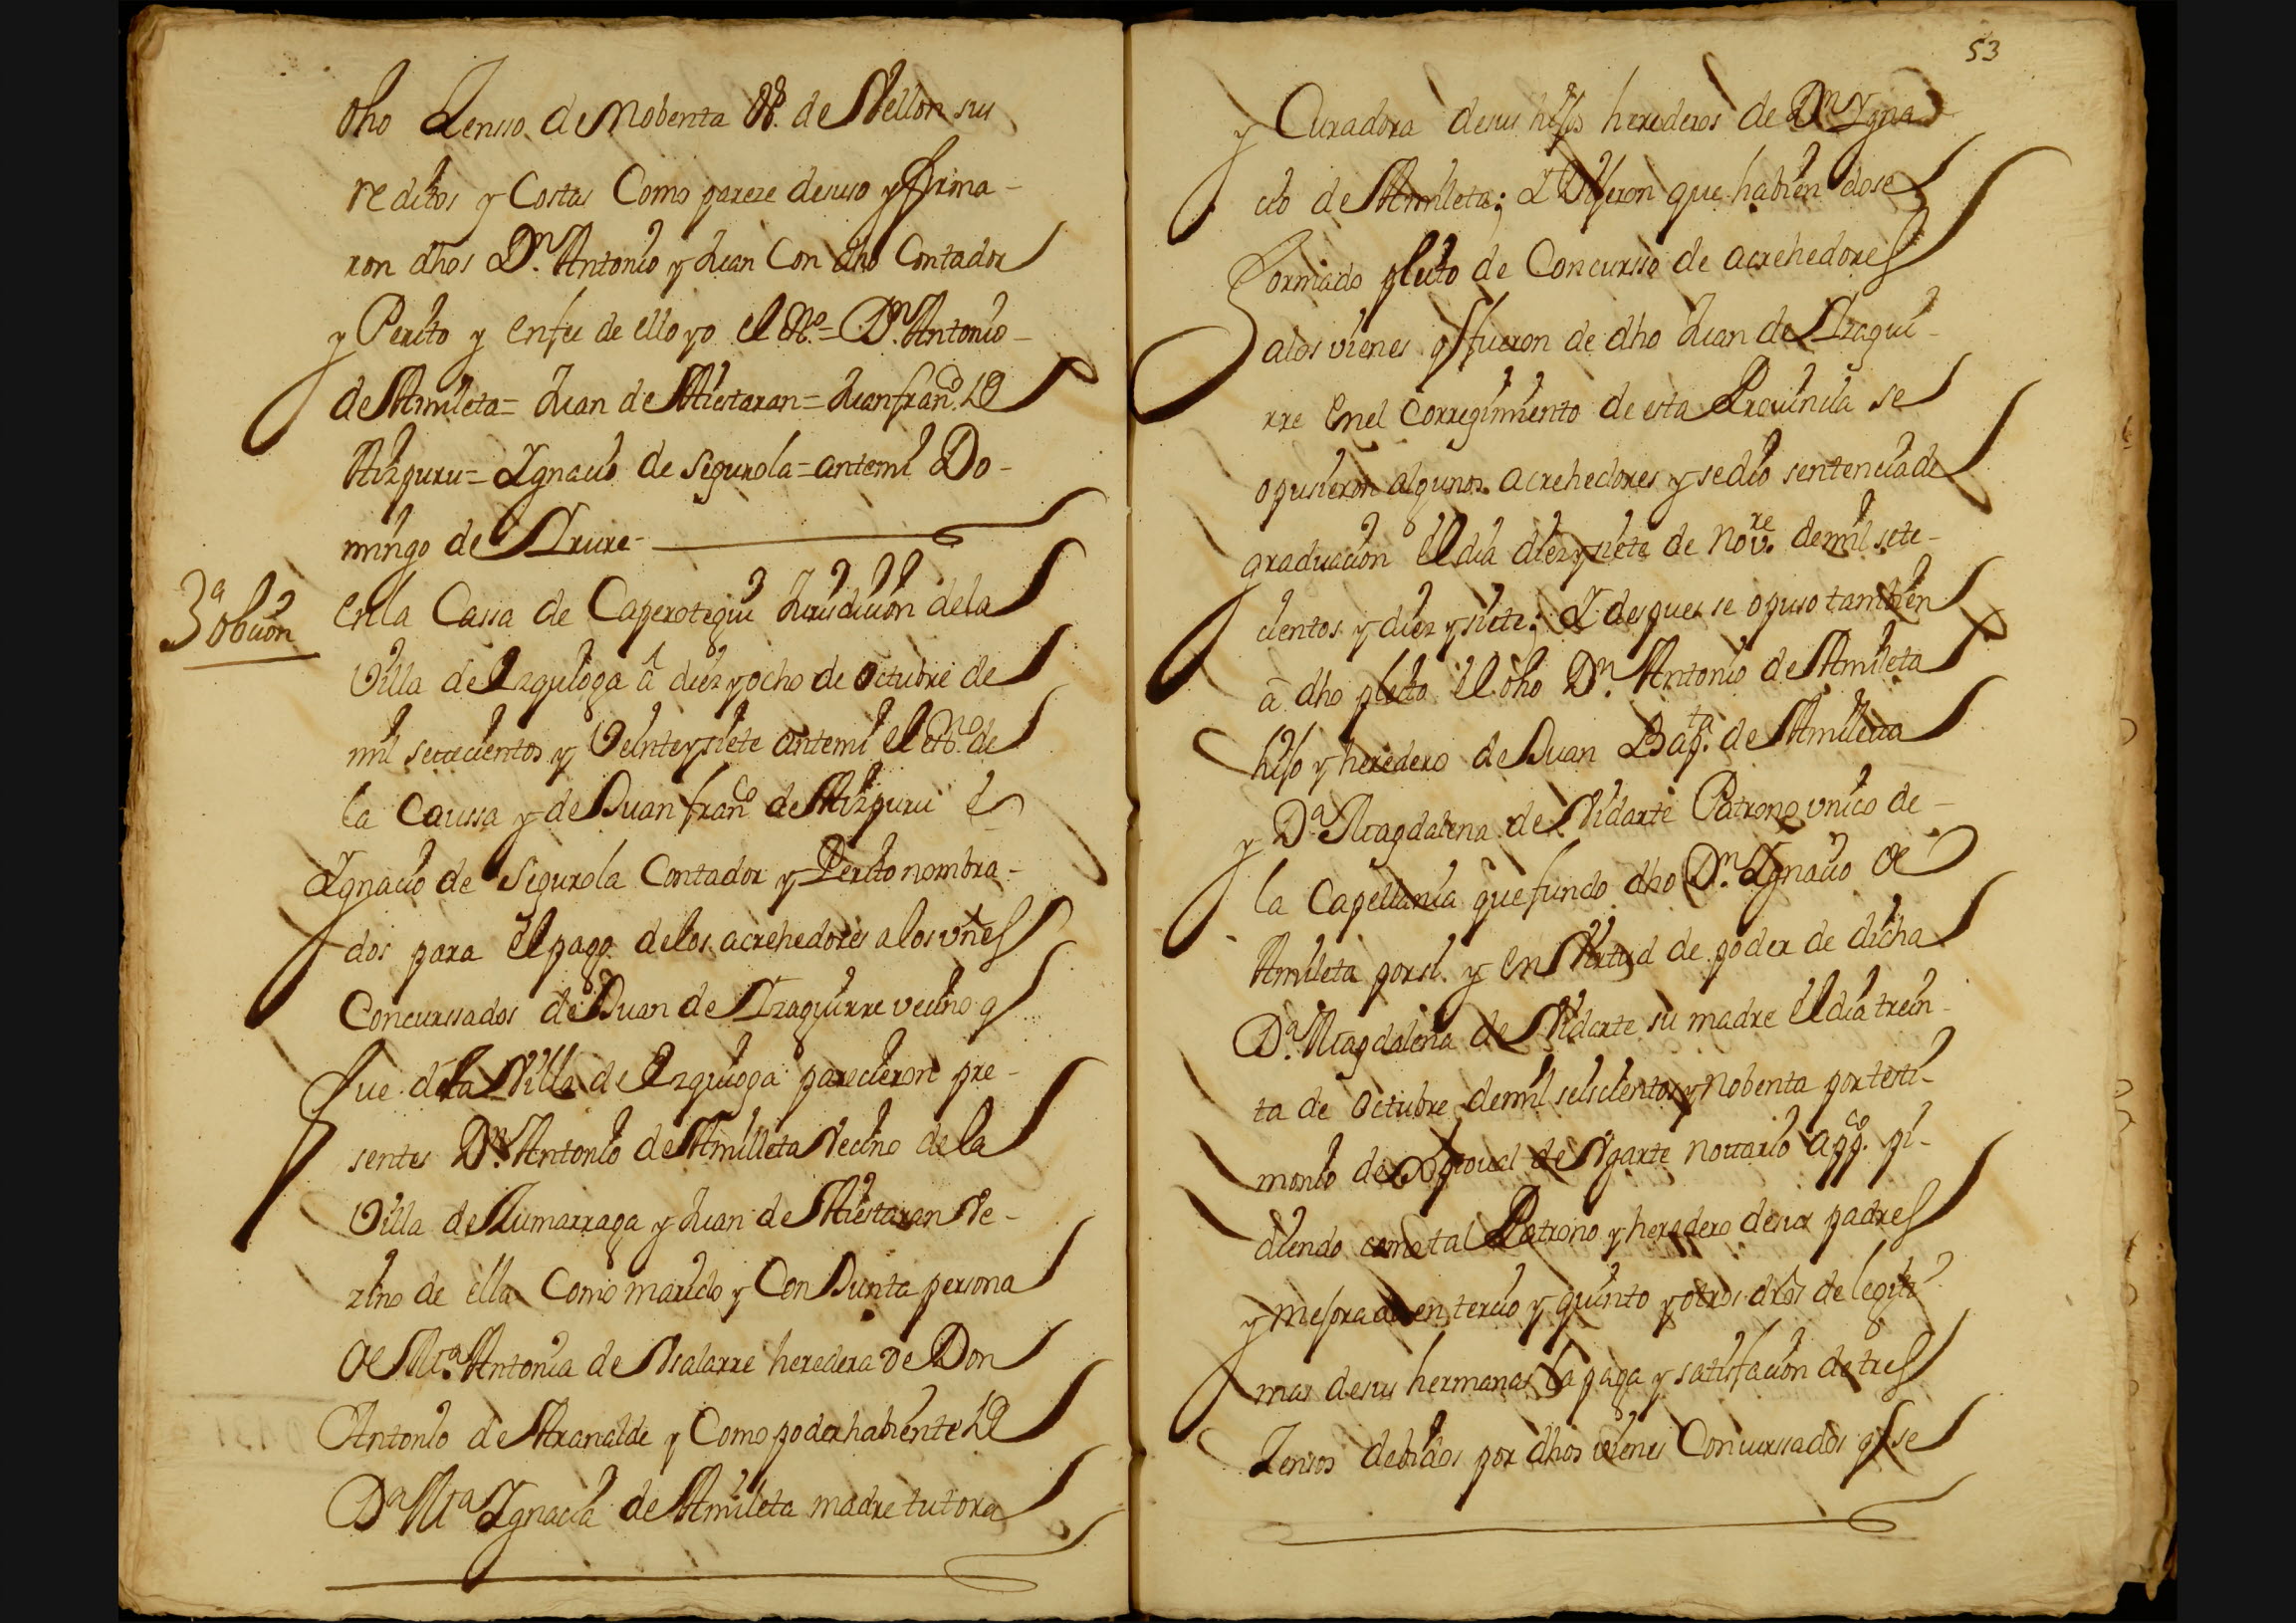 dho Zensso de Nobenta Rs. de Vellon sus
reditos y Costas Como pareze desuso y firma-
ron dhos Dn. Antonio y Juan Con dho Contador
y Perito y enfee de ello yo el No.= Dn. Antonio-
de Amileta= Juan de Aiestaran= Juan franco. de
Aizpuru= Ygnacio de Segurola= antemi Do-
mingo de Yrure-
3a obcion
enla Cassa de Caperotegui Jurisdicion dela
Villa de Ezquioga â diez y ocho de octubre de
mil setecientos y Veinte y siete antemi el esno. de
la Caussa y de Juan franco de Aizpuru e
Ygnacio de Segurola Contador y Perito nombra-
dos para el pago delos acrehedores a los vnes
Concurssados de Juan de Yzaguirre vecino q
fue dela Villa de Ezquioga parecieron pre-
sentes Dn. Antonio de Amilleta Vecino de la
Villa de Zumarraga y Juan de Aiestaran Ve-
zino de ella Como marido y Con Junta persona
de Ma. Antonia de Alalarre heredera de Don
Antonio de Aranalde y Como poderhabiente de
Da Ma Ygnacia de Amileta madre tutora
53
y Curadora desus hijos herederos de Dn Ygna
cio de Amileta; Y Dijeron que habien dose
formado pleito de Concursso de acrehedores
alos vienes q fueron de dho Juan de Yzagui-
rre enel Corregimiento de esta Provincia se
opusieron algunos acrehedores y sedio sentencia de
graduacion el dia diez y siete de Novre. demil sete-
cientos y diez y siete; Y despues se opuso tambien
â dho pleito el dho Dn. Antonio de Amileta
hijo y heredero de Juan Bapta. de Amilleta
y Da Magdalena de Vidarte Patrono vnico de-
la Capellania que fundo dho Dn. Ygnacio de
Amileta porsi y en Virtud de poder de dicha
Da. Magdalena de Vidarte su madre el dia trein-
ta de octubre demil seiscientos y Nobenta por testi-
monio de Xptoual de Vgarte Nottario appco. pi-
diendo como tal Patrono y heredero desus padres
y mejorado en tercio y quinto y otros dros de legiti
mas desus hermanas la paga y satisfacion de tres
Zensos debidos por dhos vienes Concurssados q se